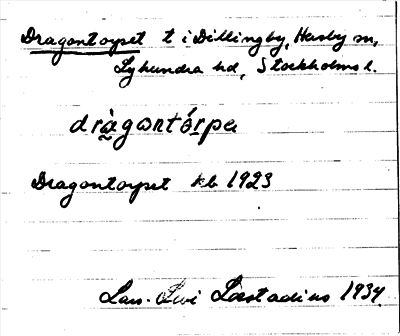 Dragontorpet t i Dillingby, Husby sn,
Lyhundra hd, Stockholms l.
dràgontórpet
Dragontorpet kb 1923
Lars-Levi Læstadius 1934